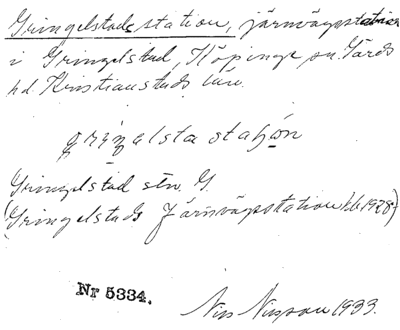 Gringelstads station, järnvägsstation
i Gringelstad, Köpinge sn. Gärds
hd Kristianstads län.
griŋəlsta staʃon
Gringelstad stn. G.
(Gringelstads Järnvägsstation 1928)
Nr 5334.
Nils 1933.